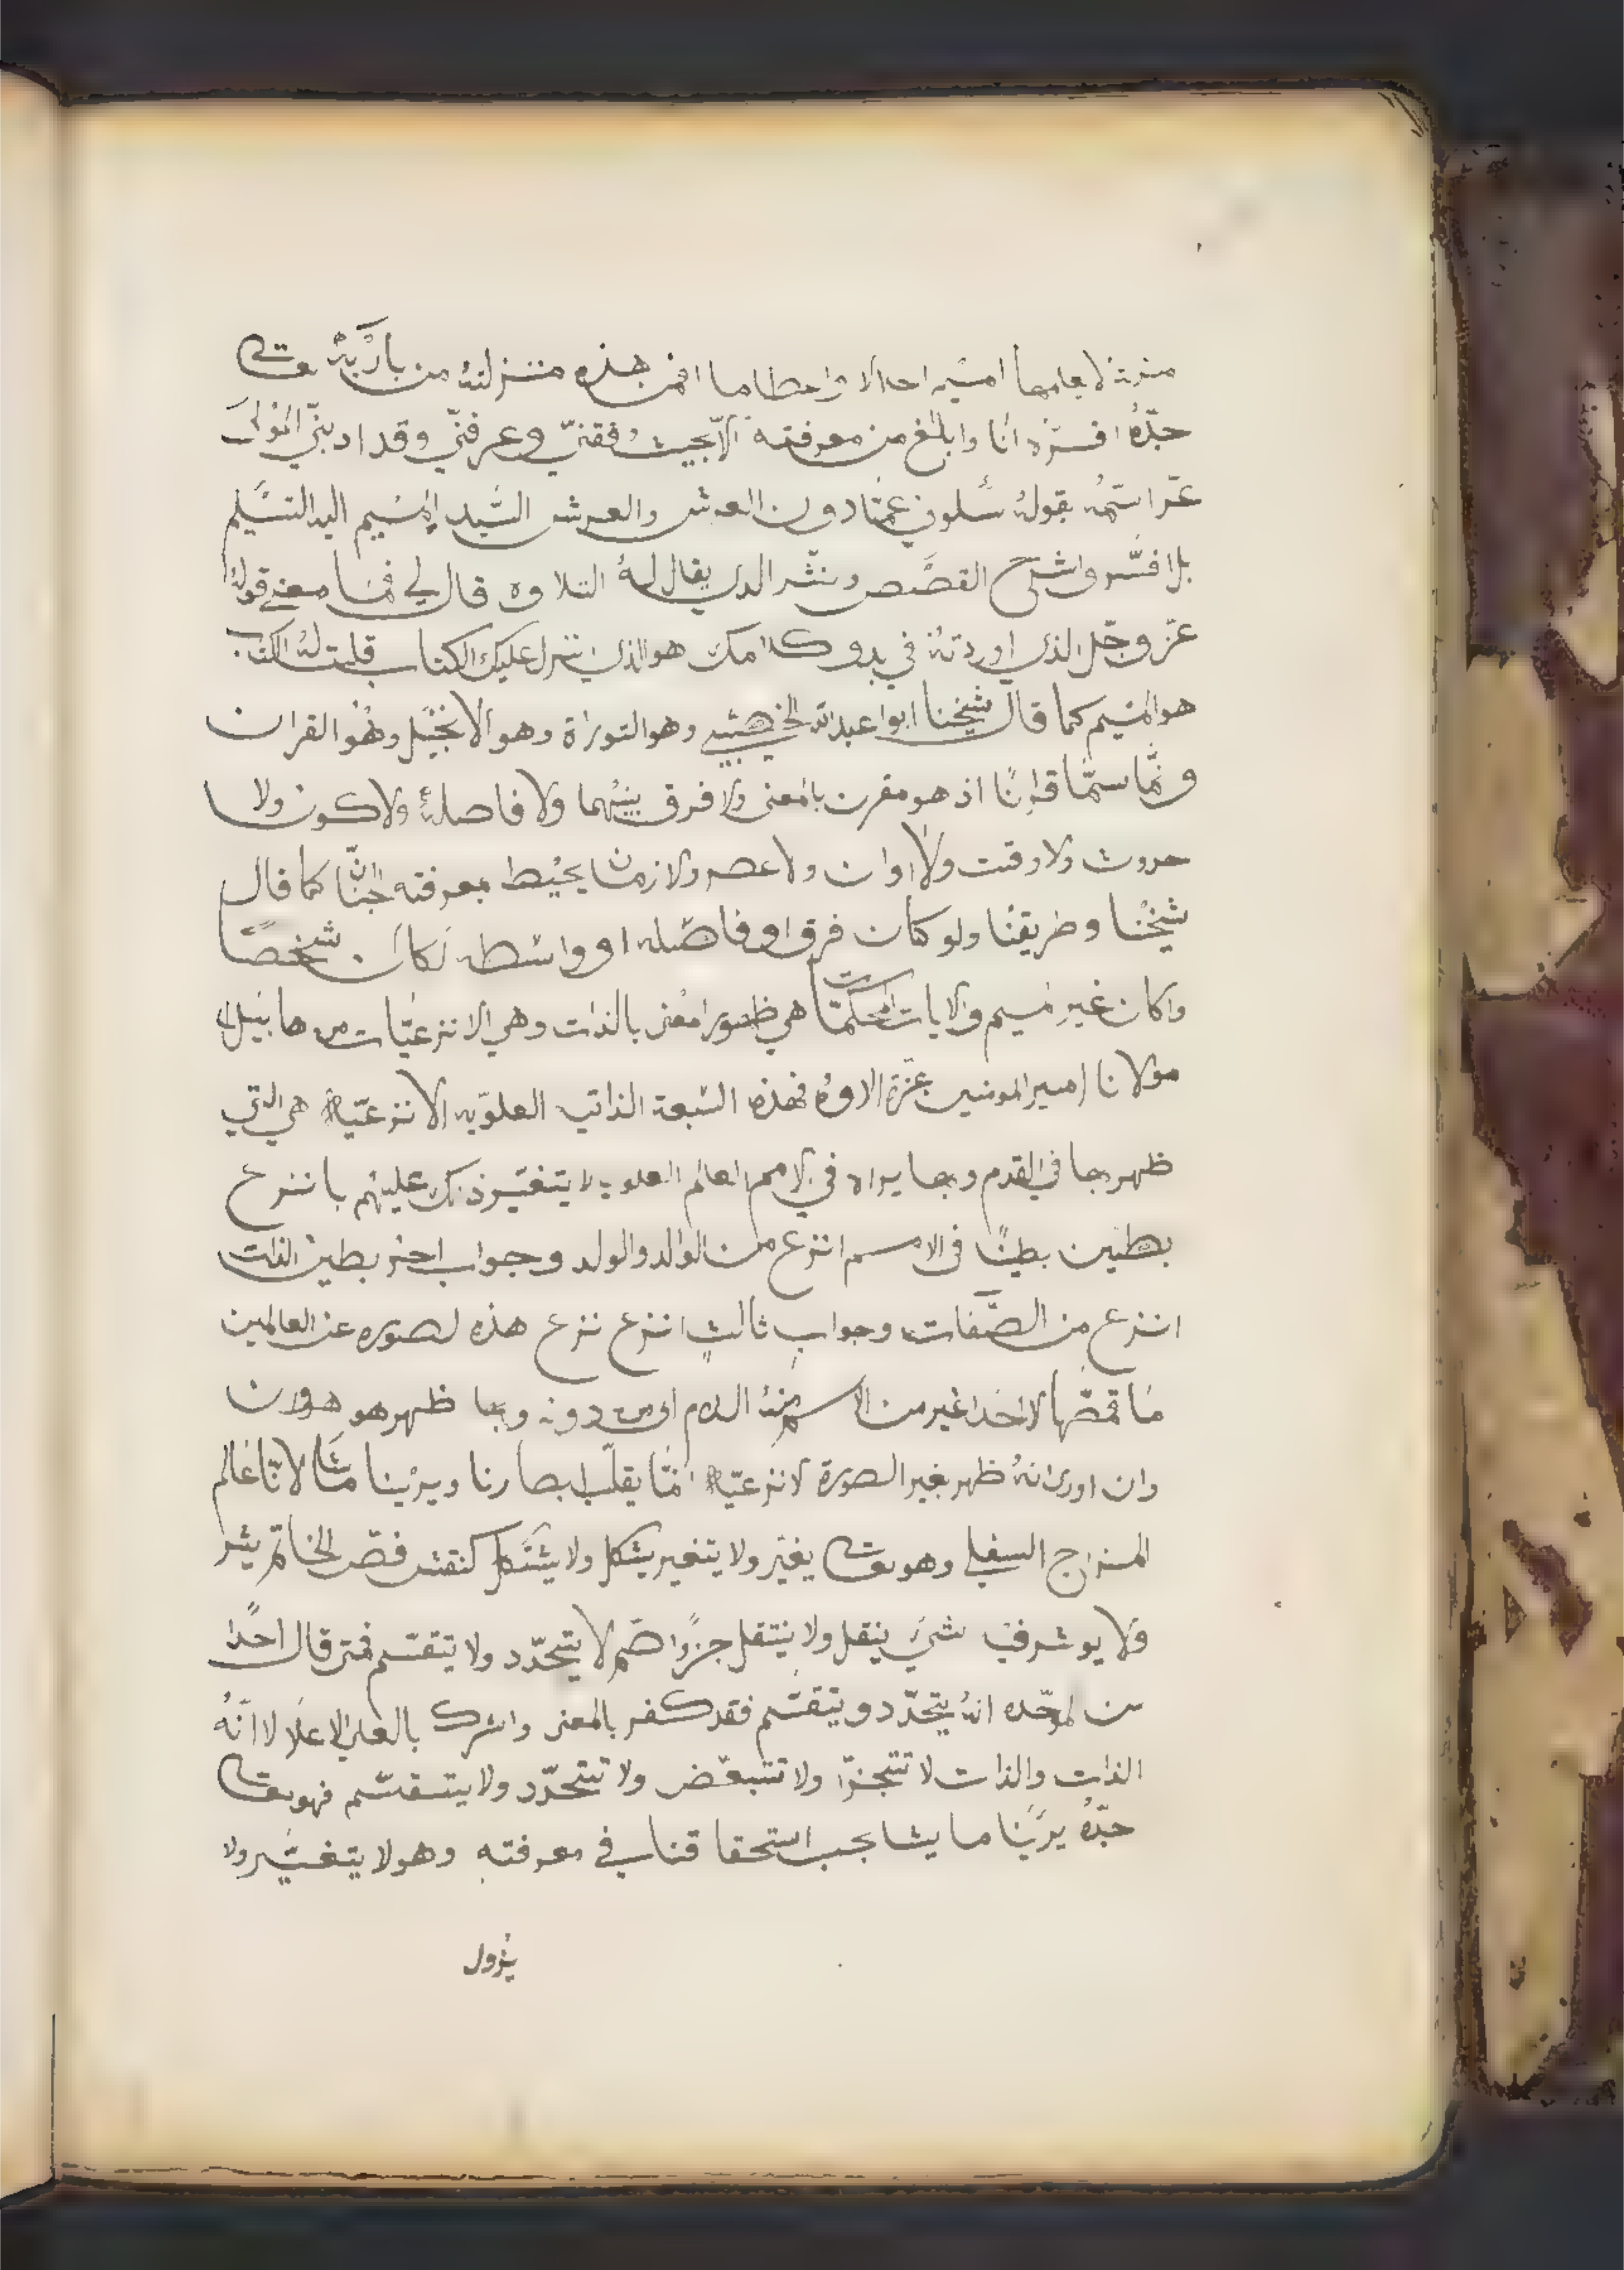 منزلة لا يعلمها احدا الا واحطاما افمن هذه منزلته من باريه تعالى
جدّه افسّره انا وابلغ من معرفته الا بحيث وفقني وعرفني وقد ادبني المولى
عز اسمه بقوله سلوني عمّا دون العرش والعرش السّيد الميم اليه التسليم
بل افسّر واشرح القصص ونثر الذي يقال له التلاوه قال لي فما معنى قوله
عزّ وجّل الذي اوردته في بدو كلامك هو الذي انزل عليك الكتاب قلت له الكتاب
هو الميم كما قال شيخنا ابوا عبدالله الخصيبي وهو التوراة وهو الانجيل وهو القران
وانّما سمّا قرانًا اذ هو مقرن بالمعنى ولا فرق بينهما ولا فاصلة ولا كون ولا
حدوث ولا وقت ولا اوان ولا عصر ولا زمان يحيط بمعرفته الجنّان كما قال
شيخنا وطريقنا ولو كان فرق او فاصّله او واسطه لكان شخصًا
وكان غير ميم والايات المحكمات هي ظهور المعنى بالذات وهي الانزعيّات من هابيل الى
مولانا امير المومنين عزّة الاوه فهذه السّبعة الذاتيه العلوّيه الانزعيّة هي التي
ظهر بها في القدم وبها يراه في الامم العالم العلوي لا يتغيّر ذلك عليهم باننرع
بطين بطينًا فى الاسم انزع من الوالد والولد وجواب اخر بطين الذات
انزع من الصّفات وجواب ثالث انزع نزع هذه الصوره عن العالمين
ما قمصّها لاحدا غير من الاسم منه السلام اى من دونه وبها ظهر هو هو وان
وان اورى انهُ ظهر بغير الصورة الانزعيّة انّما يقلّب ابصارنا ويرينا مثالا لانّا عالم
المزاج السفلي وهو تعالى يغيّر ولا يتغير يشكل ولا يتشكل كنقش فصّ الخاتم يثر
ولا يوثر فيه شئ ينقل ولا ينتقل جزؤا اصّم لا يتحدّد ولا يتقسّم فمتى قال احدا
من الموحّده انه يتحدّد ويتقسّم فقد كفر بالمعنى واشرك بالعلي الاعلا لا انّه
الذات والذات لا تتجزّا ولا تتبعّض ولا تتحدّد ولا يتقسّم فهو تعالى
جدّه يرينا ما يشا بحسب استحقاقنا في معرفته وهو لا يتغيّر ولا
يزول